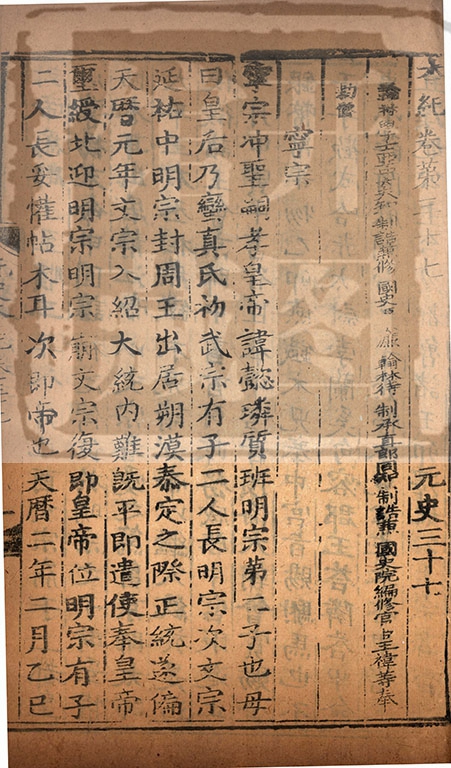 本紀卷第三十七 元史三十七
翰林學士亞中大夫知制誥兼修國史臣 濂 翰林待制承直郎同知制誥兼國史院編修官臣王禕等奉
勑修
寧宗
寧宗冲聖嗣孝皇帝諱懿璘質班明宗第二子也母
曰皇后乃蠻真氏初武宗有子二人長明宗次文宗
延祐中明宗封周王出居朔漠泰定之際正統遂偏
天曆元年文宗入紹大統内難既平即遣使奉皇帝
璽綬北迎明宗明宗崩文宗復即皇帝位明宗有子
二人長妥懽帖木耳次即帝也天曆二年二月乙巳